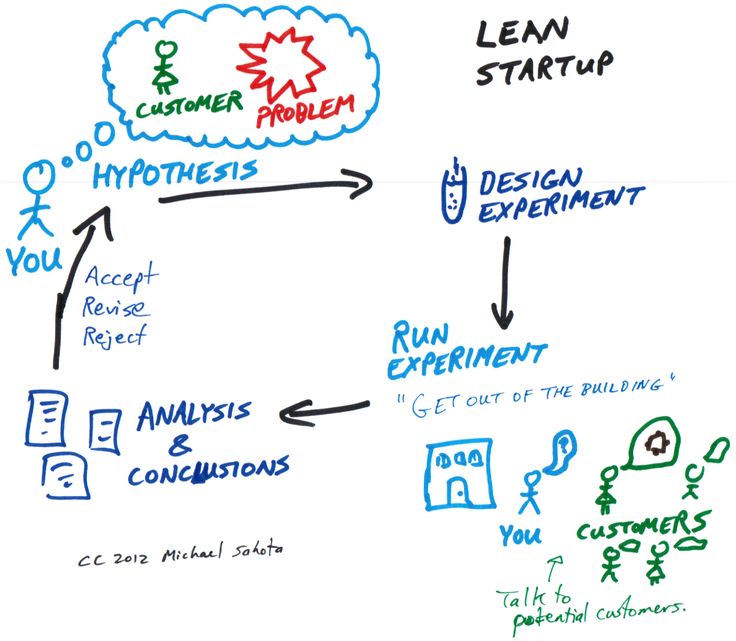 LEAN
STARTUP
CUSTOMER
PROBLEM
HYPOTHESIS
YOU
DESIGN
EXPERIMENT
Accept
Revise
Reject
RUN
EXPERIMENT
"GET OUT OF THE BUILDING"
ANALYSIS
&
CONCLUSIONS
?
YOU
CUSTOMERS
Talk to
potential customers.
CC 2012 Michael Sahota